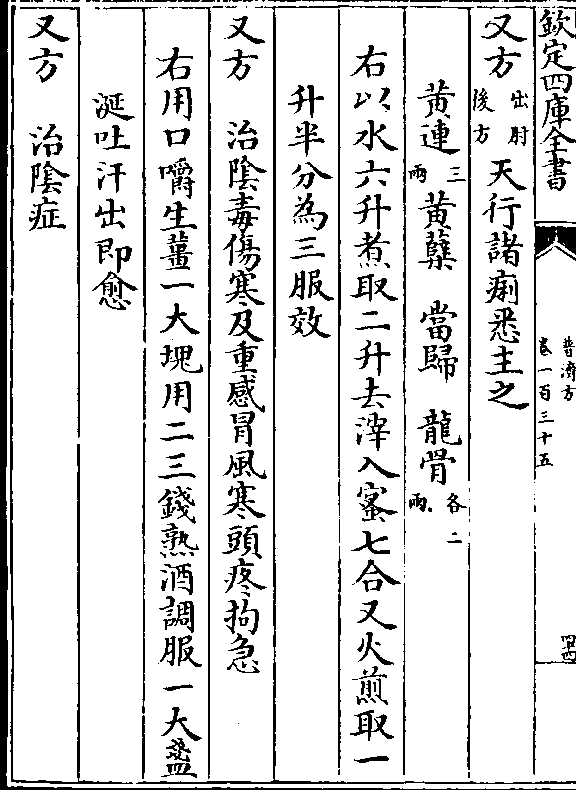 欽定四庫全書
普濟方
卷一百三十五
四四
又方出肘後方天行諸痢悉主之
黃連三兩黃蘗 當歸 龍骨各二兩
右以水六升煮取二升去滓入蜜七合又火煎取一
升半分為三服效
又方 治陰毒傷寒及重感冒風寒頭疼拘急
右用口嚼生薑一大塊用二三錢熟酒調服一大盞
涎吐汗出即愈
又方 治陰症